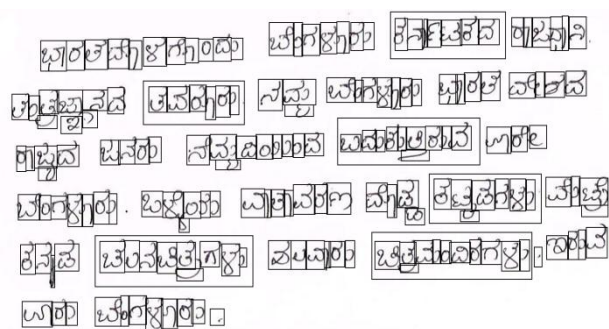 ಭಾರತದೊಳಗೊಂದು ಬೆಂಗಳೂರು ಕರ್ನಾಟಕದ ರಾಜಧಾನಿ.
ತಂತ್ರಜ್ಞಾನದ ತವರೂರು. ನಮ್ಮ ಬೆಂಗಳೂರು ಭಾರತ ದೇಶದ
ರಾಜ್ಯದ ಜನರು ನೆಮ್ಮದಿಯಿಂದ ಬದುಕುತ್ತಿರುವ ಊರೇ
ಬೆಂಗಳೂರು. ಒಳ್ಳೆಯ ವಾತಾವರಣ ದೊಡ್ಡ ಕಟ್ಟಡಗಳು ಮೆಟ್ರೊ
ಕನ್ನಡ ಚಲನಚಿತ್ರಗಳು ಹಲವಾರು ಚಿತ್ರಮಂದಿರಗಳು. ಇರುವ
ಊರು ಬೆಂಗಳೂರು.